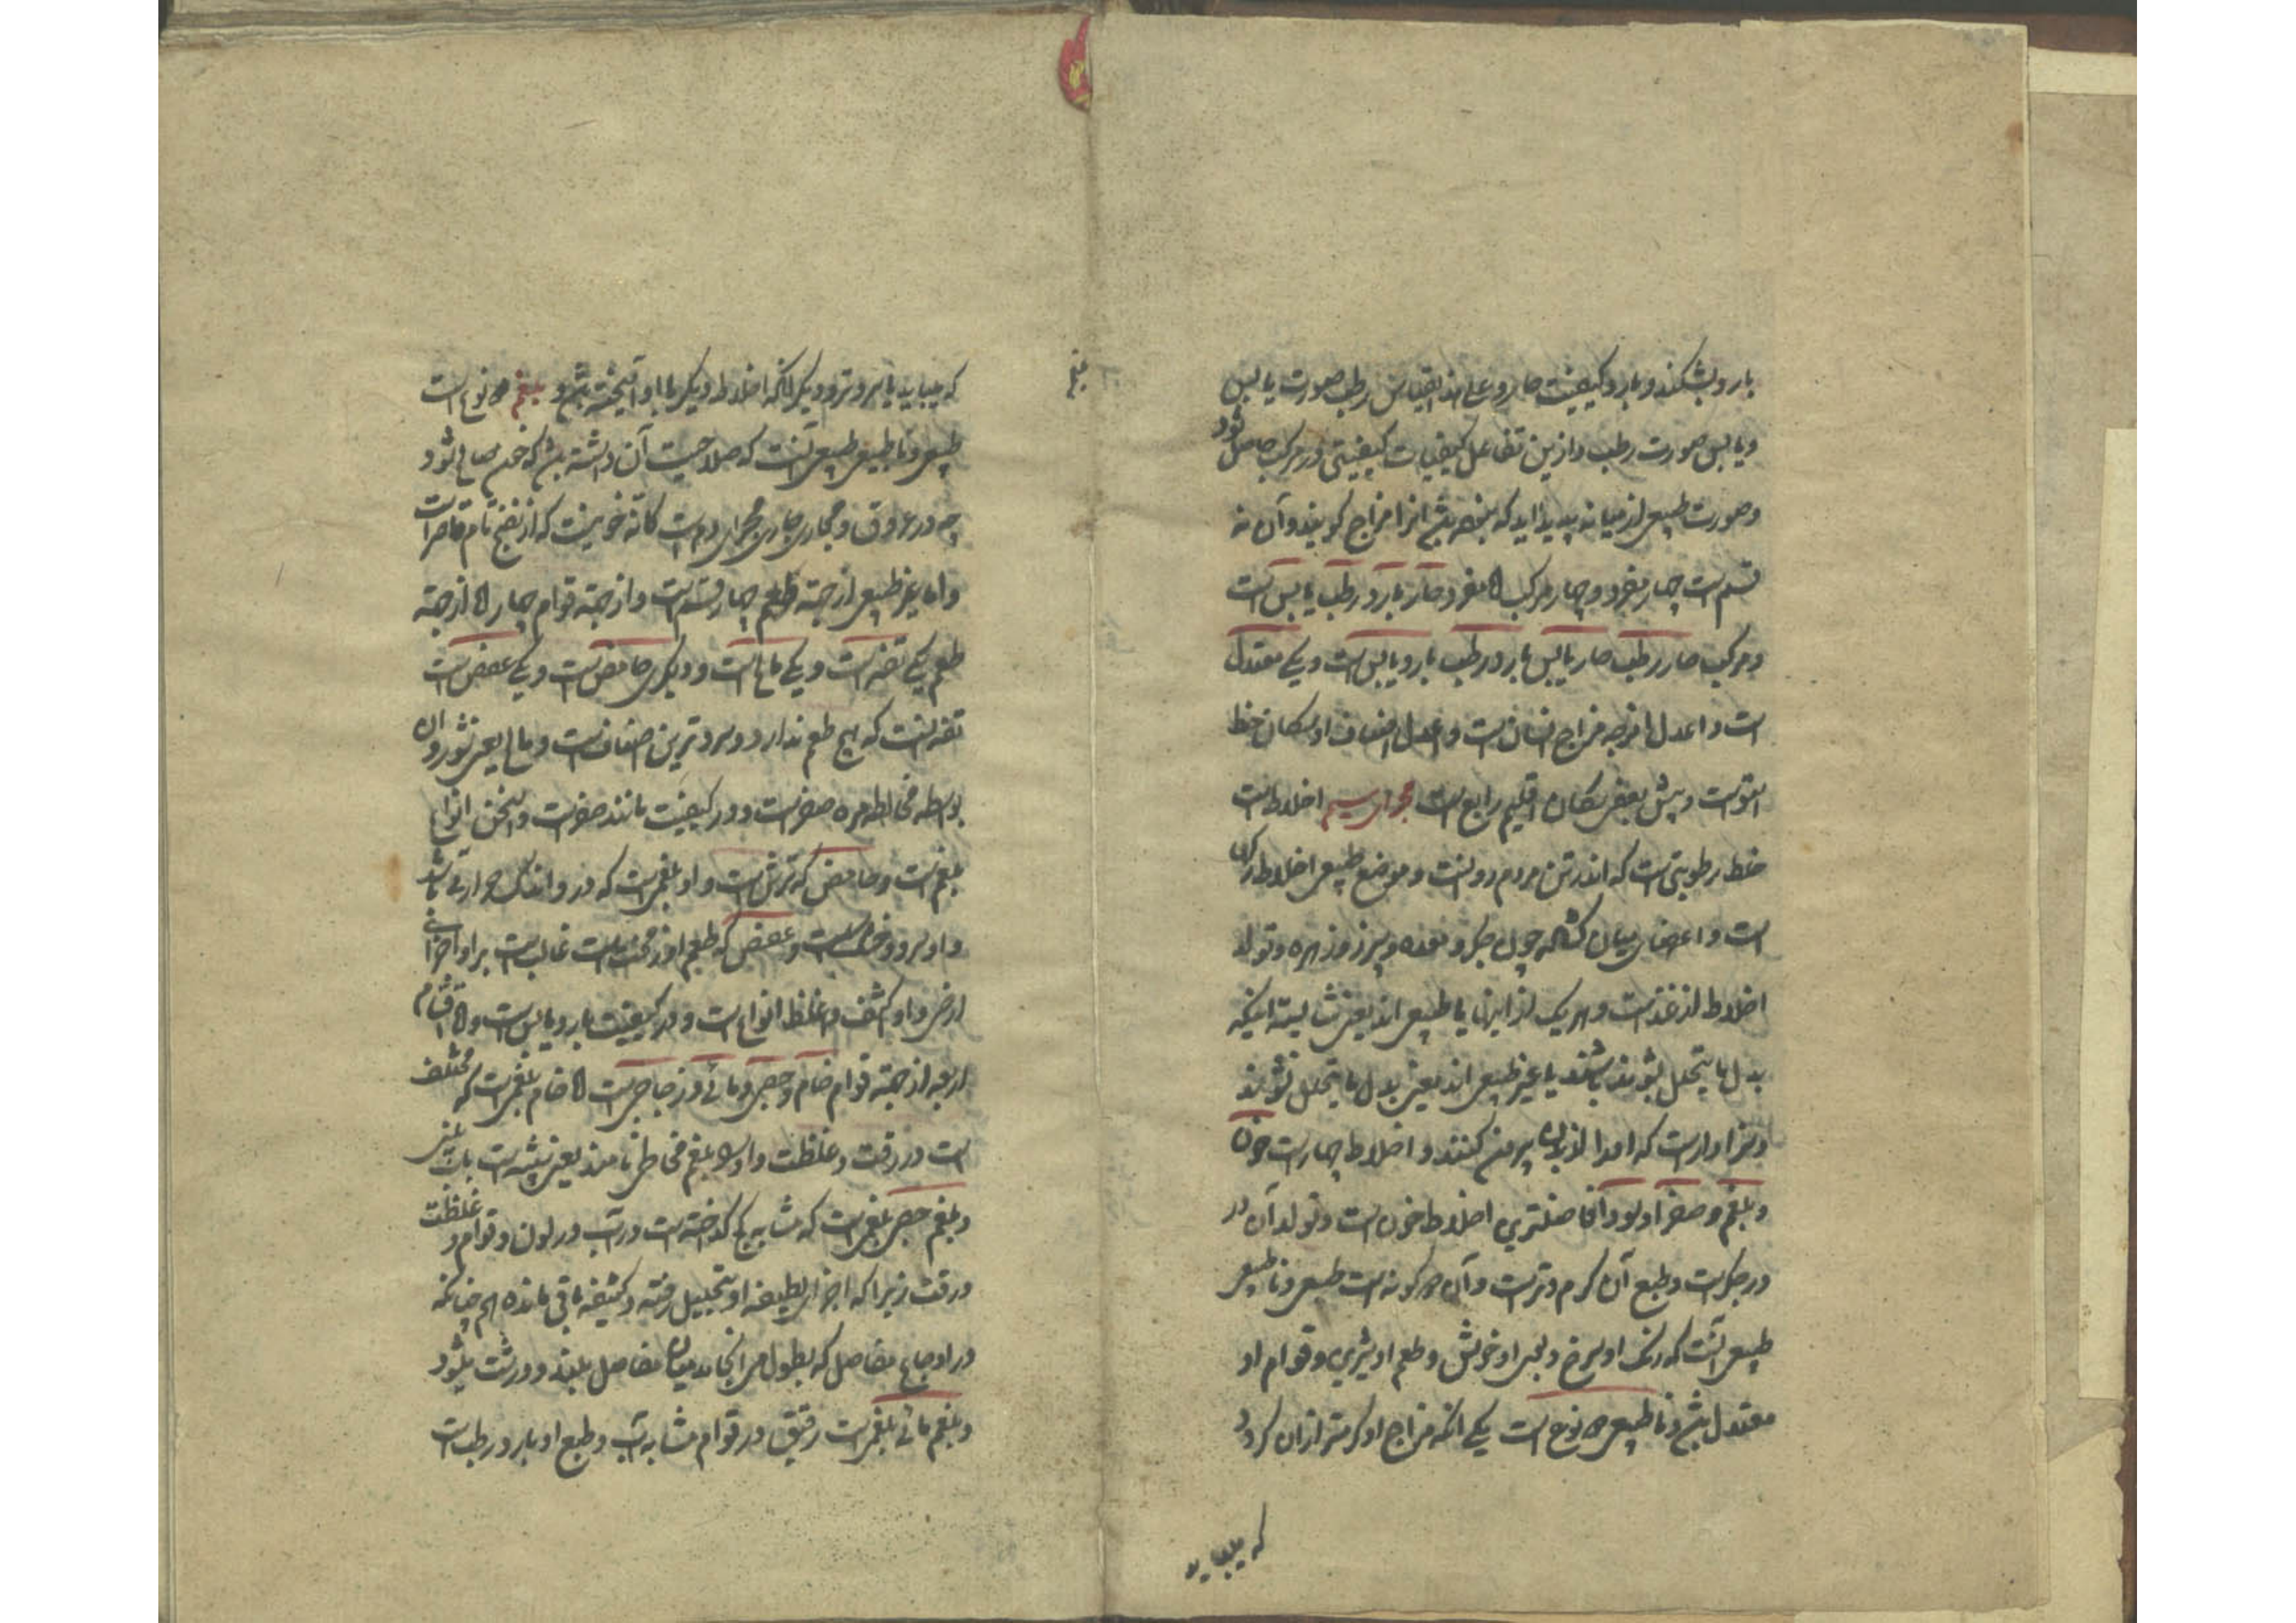 بارد بشکند و بارد کیفیت حار و علی هذا القیاس رطب صورت یابس
و یابس صورت رطب و ازین تفاعل کیفیات کیفیتی در مرکب حاصل شود
و صورت طبیعی از میانه پدید اید که باشد انرا مزاج کویند و آن نه
قسم است چهار مفرد و چهار مرکب اما مفرد حار بارد رطب یابس است
و مرکب حار رطب حار یابس بارد رطب بارد یابس است و یکی معتدل
است و اعدل امزجه مزاج انسان است و اعدل اصناف او سکان خط
استواست و پیش بعضی سکان اقلیم رابع است سیم اخلاط است
خلط رطوبتی است که اندر تن مردم روانست و موضع طبیعی اخلاط رکها
است و اعضای میان چون جکر و معده و سپرز و زهره و تولد
اخلاط از غذاست و هر یک از اینها یا طبیعی اند یعنی شایسته اینکه
بدل ما یتحلل شوند باشند یا غیر طبیعی اند یعنی بدل ما یتحلل نشوند
و سزاوار است که او را از بدن بیرون کنند و اخلاط چهار است خون
و بلغم و صفرا و سودا فاضلترین اخلاط خون است و تولد آن در
در جکر است و طبع آن کرم و تر است و آن دو کونه است طبیعی و ناطبیعی
طبیعی آنست که رنک او سرخ و بوی او خوش و طعم او شیرین و قوام او
معتدل باشد و ناطبیعی دو نوع است یکی انکه مزاج او کرمتر ازان کردد
که میباید
بلغم
که میباید یا سردتر و دیکر انکه اخلاط دیکر با او آمیخته باشد و بلغم دو نوع است
طبیعی و ناطبیعی طبیعی آنست که صلاحیت آن داشته باشد که خون صالح شود
چه در عروق و مجاری جاری مجرای دم است کانه خونیست که از نضج تام قاصر است
و اما غیر طبیعی از جهة طعم چهار قسم است و از جهة قوام چهار اما از جهة
طعم یکی تفه است و یکی مالح است و دیکری حامض است و یکی عفص است
تفه انست که هیچ طعم ندارد و سردترین اصناف است و مالح یعنی شور و ان
بواسطه مخالطه مره صفراست و در کیفیت مانند صفراست و اسخن انواع
بلغم است و حامض که ترش است و او بلغمی است که درو اندک حرارتی باشد
و او سرد و خام است و عفص که طعم او زمخت است غالب است بر او اجزای
ارضی و او اکثف و اغلظ انواع است و در کیفیت بارد یابس است و اما اقسام
اربعه از جهة قوام خام و جصی و مائی و زجاجی است اما خام بلغمی است که مختلف
است در رقت و غلظت و او را بلغم مخاطی نامند یعنی شبیه است باب بینی
و بلغم جصی بلغمی است که مشابه کچ کداخته است در آب در لون و قوام و غلظت
و رقت زیرا که اجزای لطیفه او بتحلیل رفته و کثیفه باقی مانده هم چنانکه
در اوجاع مفاصل که بطول می انجامد میان مفاصل بلغم درشت میشود
و بلغم مائی بلغمی است رقیق در قوام مشابه آب و طبع او بارد رطب است